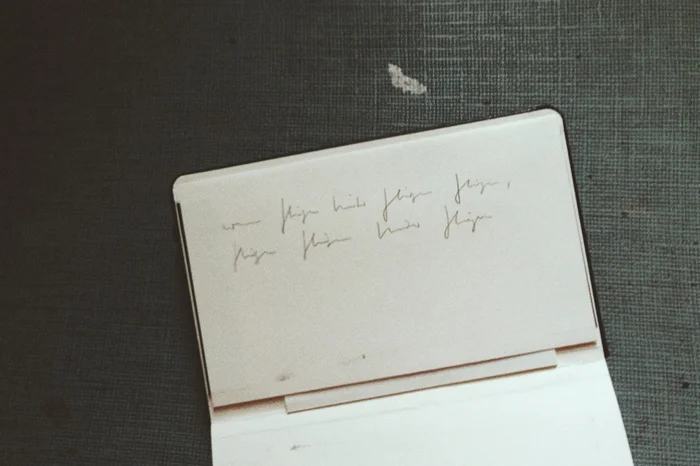 wenn fliegen hinter fliegen fliegen,
fliegen fliegen hinter fliegen